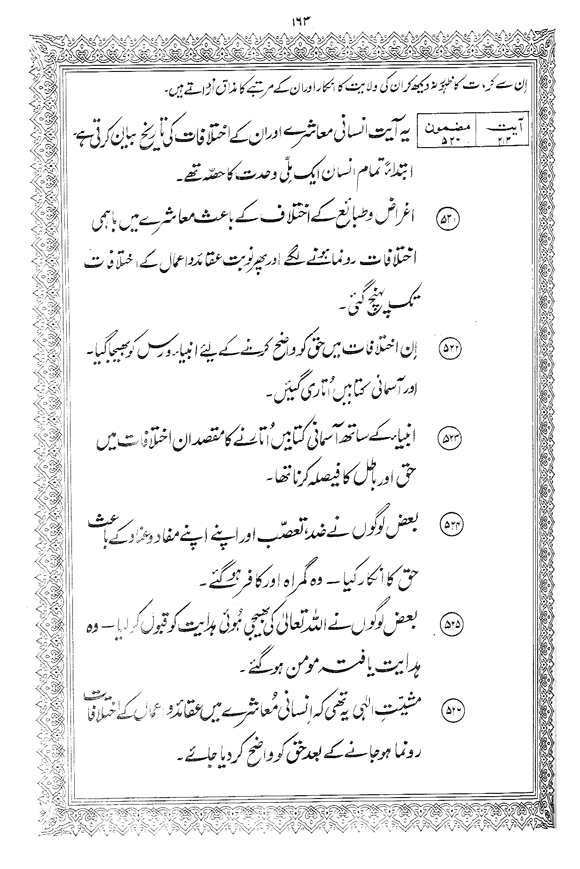 ۱۶۳
اِن سے کرامات کا ظہور نہ دیکھ کر ان کی ولایت کا انکار اور ان کے مرتبے کا مذاق اُڑاتے ہیں۔
آیت ۲۱۳ مضمون ۵۲۰ یہ آیت انسانی معاشرے اور ان کے اختلافات کی تاریخ بیان کرتی ہے۔
ابتداءً تمام انسان ایک ملّی وحدت کا حصّہ تھے۔
۵۲۱ اغراض و طبائع کے اختلاف کے باعث معاشرے میں باہمی
اختلافات رونما ہونے لگے اور پھر نوبت عقائد و اعمال کے اختلافات
تک پہنچ گئی۔
۵۲۲ اِن اختلافات میں حق کو واضح کرنے کے لیئے انبیاء و رسل کو بھیجا گیا۔
اور آسمانی کتابیں اُتاری گئیں۔
۵۲۳ انبیاء کے ساتھ آسمانی کتابیں اُتارنے کا مقصد ان اختلافات میں
حق اور باطل کا فیصلہ کرنا تھا۔
۵۲۴ بعض لوگوں نے ضد، تعصّب اور اپنے اپنے مفاد و عناد کے باعث
حق کا انکار کیا – وہ گمراہ اور کافر ہو گئے۔
۵۲۵ بعض لوگوں نے اللہ تعالیٰ کی بھیجی ہُوئی ہدایت کو قبول کر لیا – وہ
ہدایت یافتہ مومن ہو گئے۔
۵۲۶ مشیّتِ الٰہی یہ تھی کہ اِنسانی مُعاشرے میں عقائد و اعمال کے اختلافات
رونما ہو جانے کے بعد حق کو واضح کر دیا جائے۔